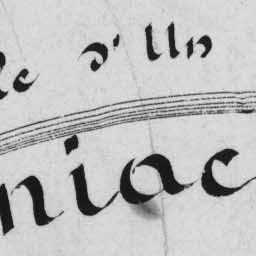 le d'Un
niac